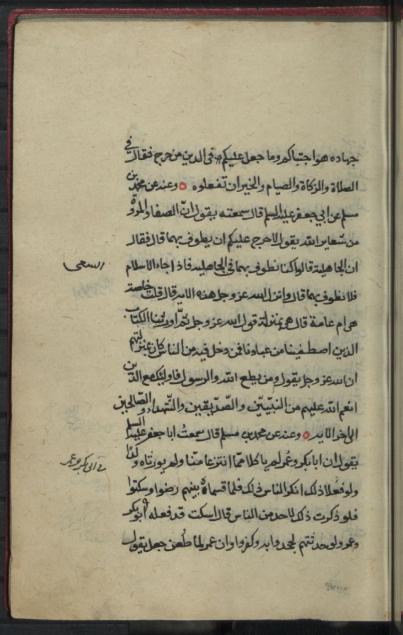 جهاده هو اجتباكم وما جعل عليكم في الدين من حرج فقال في
الصلاة والزكاة والصيام والخير ان تفعلوه وعنه عن محمد بن
مسلم عن ابي جعفر عليه السلم قال سمعته يقول ان الصفا والمروة
من شعاير الله يقول لا حرج عليكم ان يطوف بهما قال فقال
ان الجاهلية قالوا كنا نطوف بهما في الجاهلية فاذا جاء الاسلام
السعى
فلا نطوف بهما قال وانزل الله عز وجل هذه الاية قال قلت خاصة
هي ام عامة قال هي بمنزلة قول الله عز وجل ثم اورثنا الكتاب
الذين اصطفينا من عبادنا فمن دخل فيه من الناس كان بمنزلتهم
ان الله عز وجل يقول ومن يطع الله والرسول فاولئك مع الذين
انعم الله عليهم من النبيين والصديقين والشهداء والصالحين
الى اخر الاية وعنه عن محمد بن مسلم قال سمعت ابا جعفر عليه السلم
في ابى بكر وعمر
يقول ان ابا بكر وعمر
ولو فعلا ذلك انكر الناس ذلك فلما قسماه بينهم رضوا وسكتوا
فلو ذكرت ذلك لاحد من الناس قال اسكت قد فعله ابو بكر
وعمر ولو حدثتهم لجحدوا به وكفروا وان عمر لما طعن جعل يقول